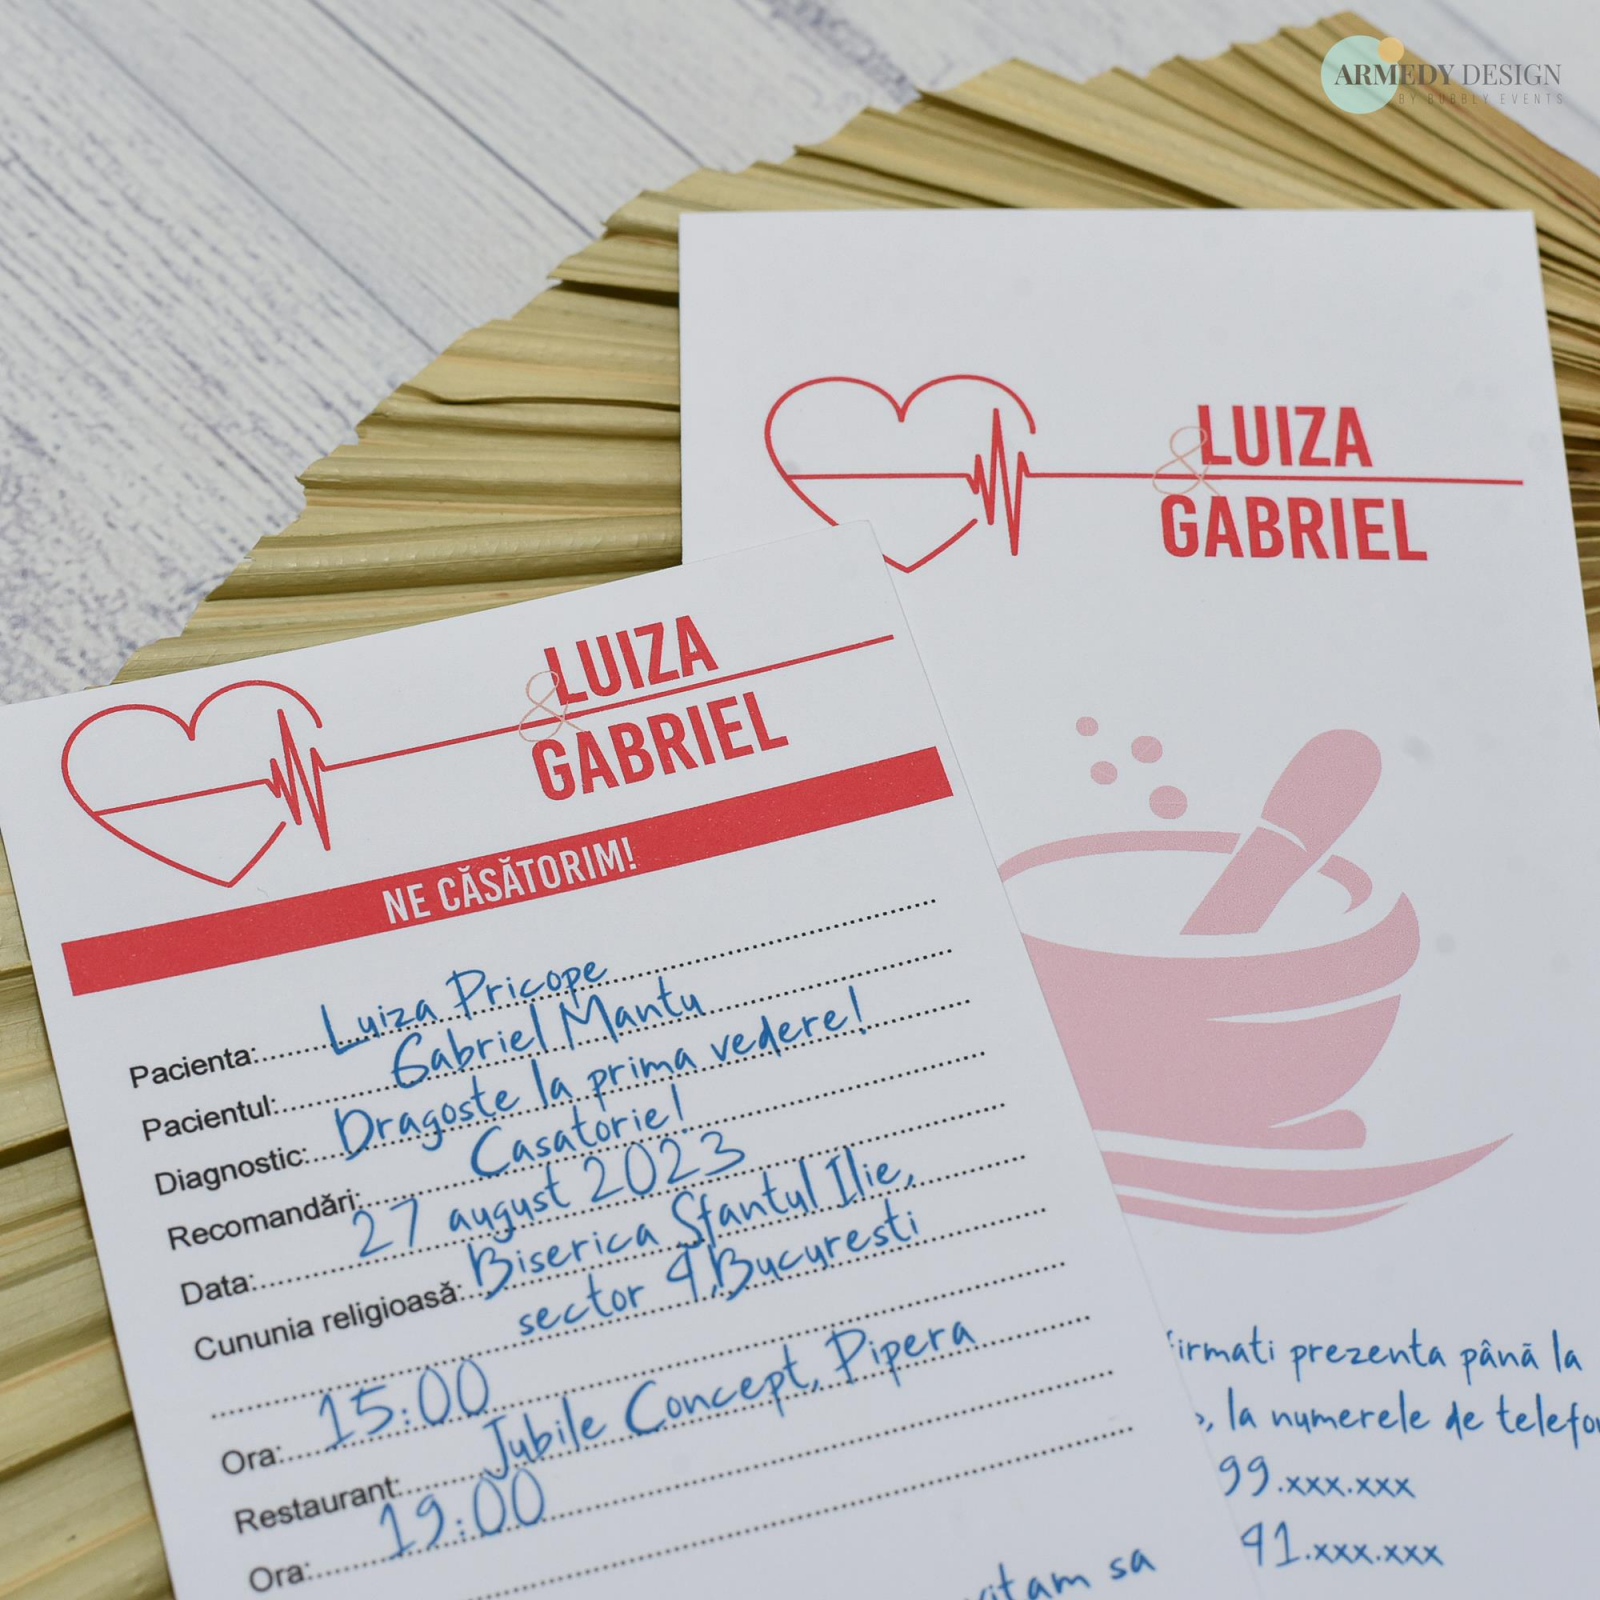 ARMEDY DESIGN
BY BUBBLY EVENTS
LUIZA
&
GABRIEL
LUIZA
&
GABRIEL
NE CĂSĂTORIM!
Pacienta: Luiza Pricope
Pacientul: Gabriel Mantu
Diagnostic: Dragoste la prima vedere!
Recomandări: Casatorie!
Data: 27 august 2023
Cununia religioasă: Biserica Sfantul Ilie,
sector 4, Bucuresti
Ora: 15:00
Restaurant: Jubile Concept, Pipera
Ora: 19:00
sa
prezenta până la
la numerele de
99.xxx.xxx
41.xxx.xxx